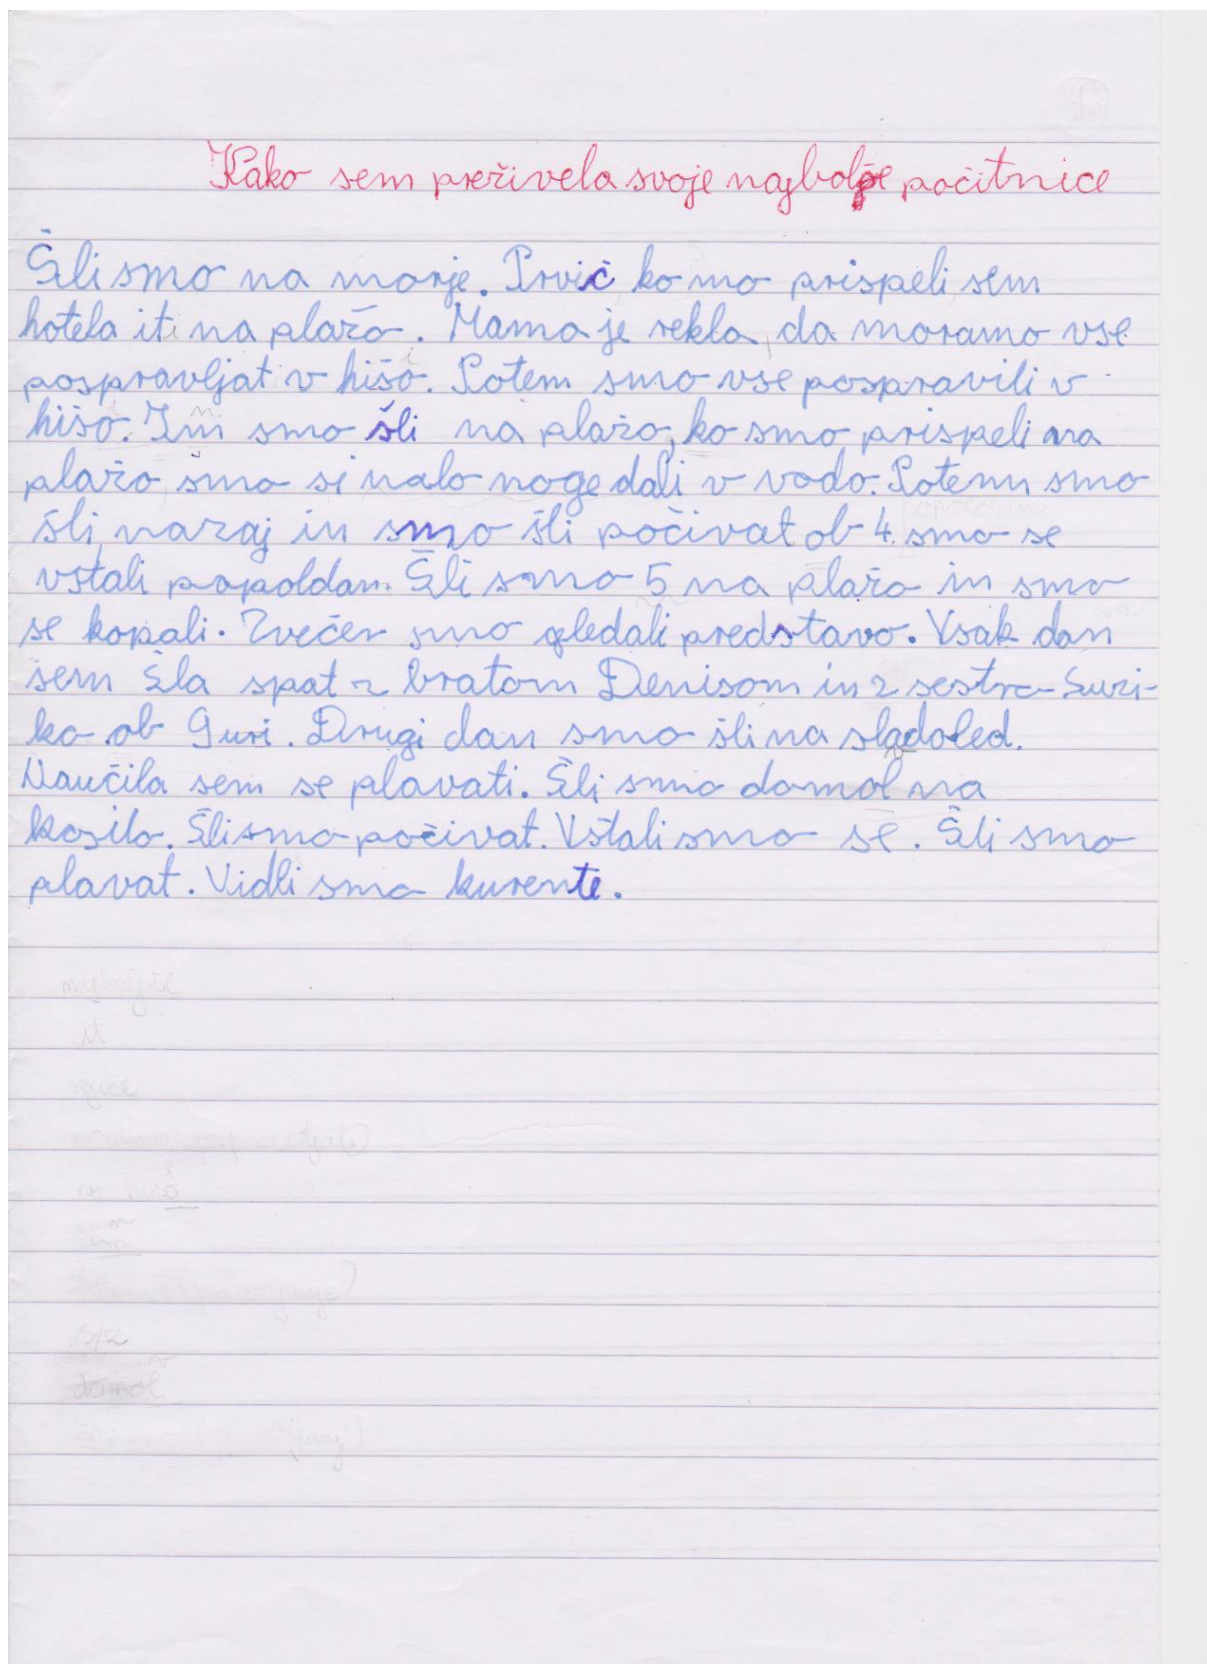 Kako sem preživela svoje najbolše počitnice
Šli smo na morje. Prvič ko mo prispeli, sem
hotela iti na plažo. Mama je rekla, da moramo vse
pospravljat v hišo. Potem smo vse pospravili v
hišo. Im smo šli na plažo, ko smo prispeli na
plažo, smo si malo noge dali v vodo. Potem smo
šli nazaj in smo šli počivat ob 4. smo se
vstali popoldan. Šli smo 5 na plažo in smo
se kopali. Zvečer smo gledali predstavo. Vsak dan
sem šla spat z bratom Denisom in z sestro Suzi-
ko ob 9 uri. Drugi dan smo šli na sladoled.
Naučila sem se plavati. Šli smo domol na
kosilo. Šli smo počivat. Vstali smo se. Šli smo
plavat. Vidli smo kurente.
it
v hišo
domol